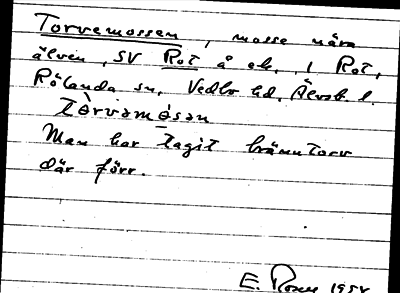 Torvemossen, mosse nära
älven, SV Rot å ek., i Rot,
Rölanda sn, Vedbo hd, Älvsb. l.
tòrvəmósən
Man har tagit bränntorv
där förr.
E. Rosén 195